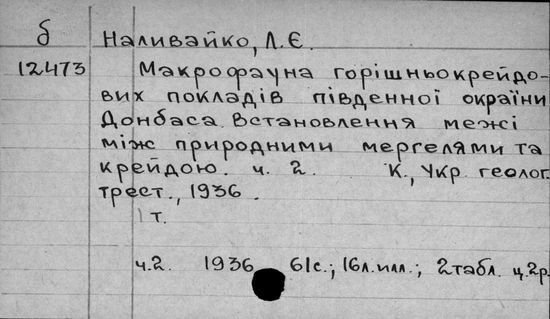 б Наливайко, Л.Є.
12473 Макрофауна горішньокрейдо-
вих покладів південної окраїни
Донбаса. Встановлення межі
між природними мергелями та
крейдою. ч. 2. К., Укр. геолог.
трест., 1936.
1 т.
ч.2. 1936 61с.; 16л.илл.; 2табл. ц.2р.